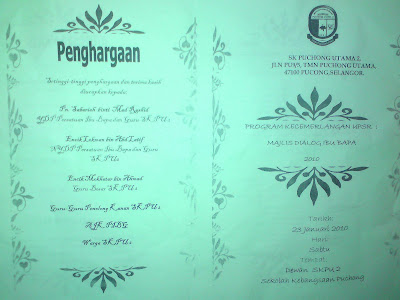 Penghargaan
Setinggi-tinggi penghargaan dan terima kasih
diucapkan kepada:
Pn. Sabariah binti Mad Rashid
YDP Persatuan Ibu Bapa dan Guru
SK PU2
Encik Lokman bin Abd Latif
NYDP Persatuan Ibu Bapa dan Guru
SK PU2
Encik Mokhtar bin Ahmad
Guru Besar SK PU2
Guru-Guru Penolong Kanan SK PU2
AJK PIBG
Warga SK PU2
SK PUCHONG UTAMA 2
JLN PU7/5, TMN PUCHONG UTAMA,
47100 PUCONG, SELANGOR.
PROGRAM KECEMERLANGAN UPSR :
MAJLIS DIALOG IBU BAPA
2010
Tarikh:
23 Januari 2010
Hari:
Sabtu
Tempat:
Dewan SKPU 2
Sekolah Kebangsaan Puchong